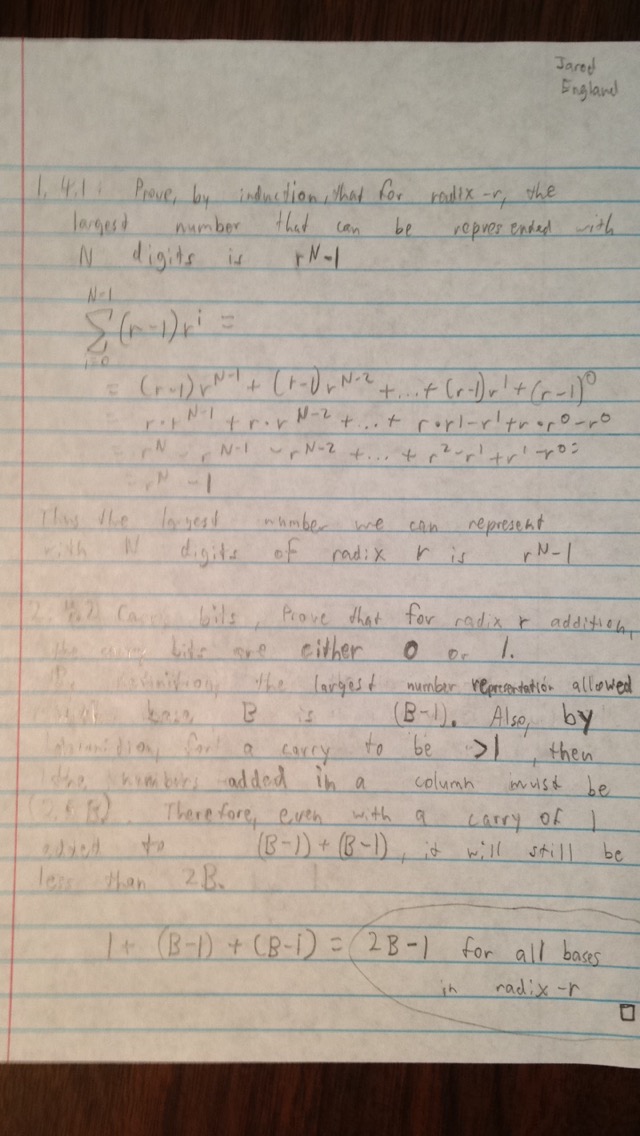 Jarod
England
1. 4.1: Prove, by induction, that for radix-r, the
largest number that can be represended with
N digits is r^N-1
N-1
∑(r-1)r^i =
i=0
= (r-1)r^N-1 + (r-1)r^N-2 + ... + (r-1)r^1 + (r-1)^0
= r•r^N-1 + r•r^N-2 + ... + r•r1-r^1+r•r^0-r^0
= r^N - r^N-1 - r^N-2 + ... + r^2-r^1+r^1-r^0=
= r^N -1
Thus the largest number we can represent
with N digits of radix r is r^N-1
2. Carry bits, Prove that for radix r addition,
the carry bits are either 0 or 1.
definition, the largest number representation allowed
base B is (B-1). Also, by
definition, for a carry to be >1, then
the numbers added in a column must be
Therefore, even with a carry of 1
added to (B-1)+(B-1), it will still be
less than 2B.
1+ (B-1) + (B-1) = 2B-1 for all bases
in radix-r
□